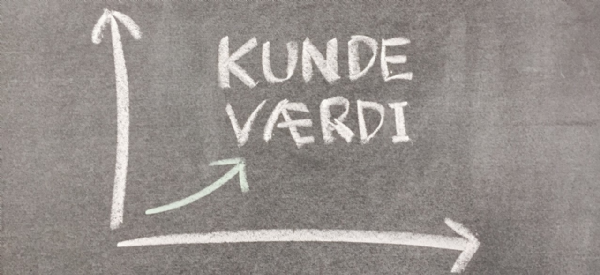 KUNDE
VÆRDI